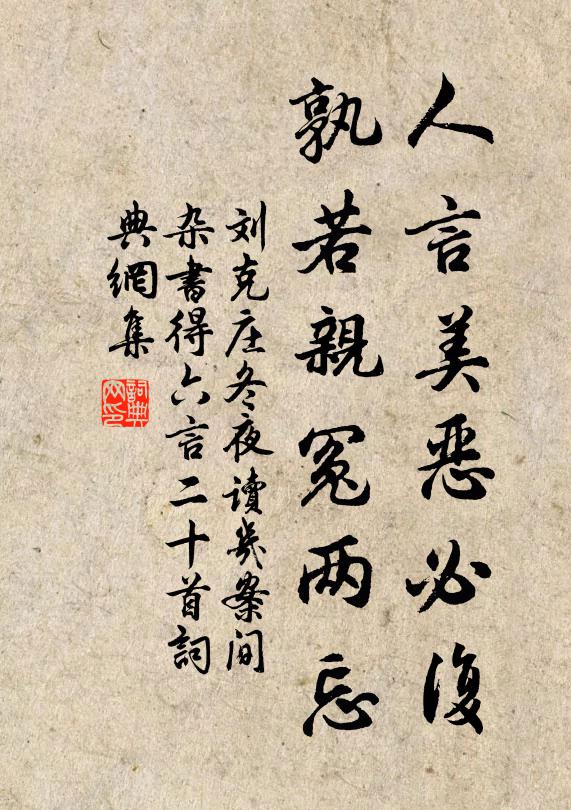 人言美恶必復
孰若親冤两忘
刘克庄冬夜讀几案间
杂書得六言二十首詞
典網集
詞典网印